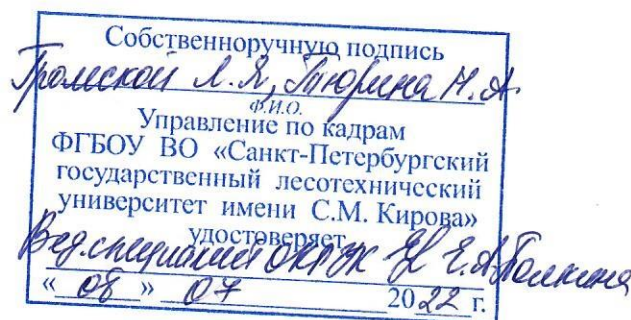 Собственноручную подпись
Громской Л.Я, Тюрина Н.А
Ф.И.О.
Управление по кадрам
ФГБОУ ВО «Санкт-Петербургский
государственный лесотехнический
университет имени С.М. Кирова»
удостоверяет
Вед.специалист Е.А.
«08» 07 2022 г.